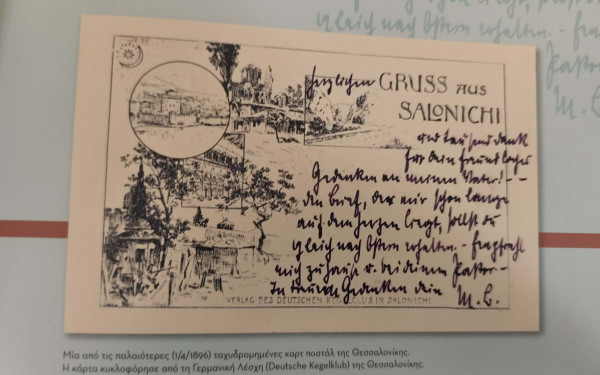 herzlichen GRUSS AUS
SALONICHI
und tausend Dank
für dein freundliches
Gedenken an meinen Vater! - -
den Brief, der mir schon lange
auf dem Herzen liegt, sollst du
gleich nach Ostern erhalten. -
mich zu Hause u. bei deinem -
In Gedenken dein M. L.
VERLAG DES DEUTSCHEN KEGELCLUB IN SALONICHI
Μία από τις παλαιότερες (1/4/1896) ταχυδρομημένες καρτ ποστάλ της Θεσσαλονίκης.
Η κάρτα κυκλοφόρησε από τη Γερμανική Λέσχη (Deutsche Kegelklub) της Θεσσαλονίκης.